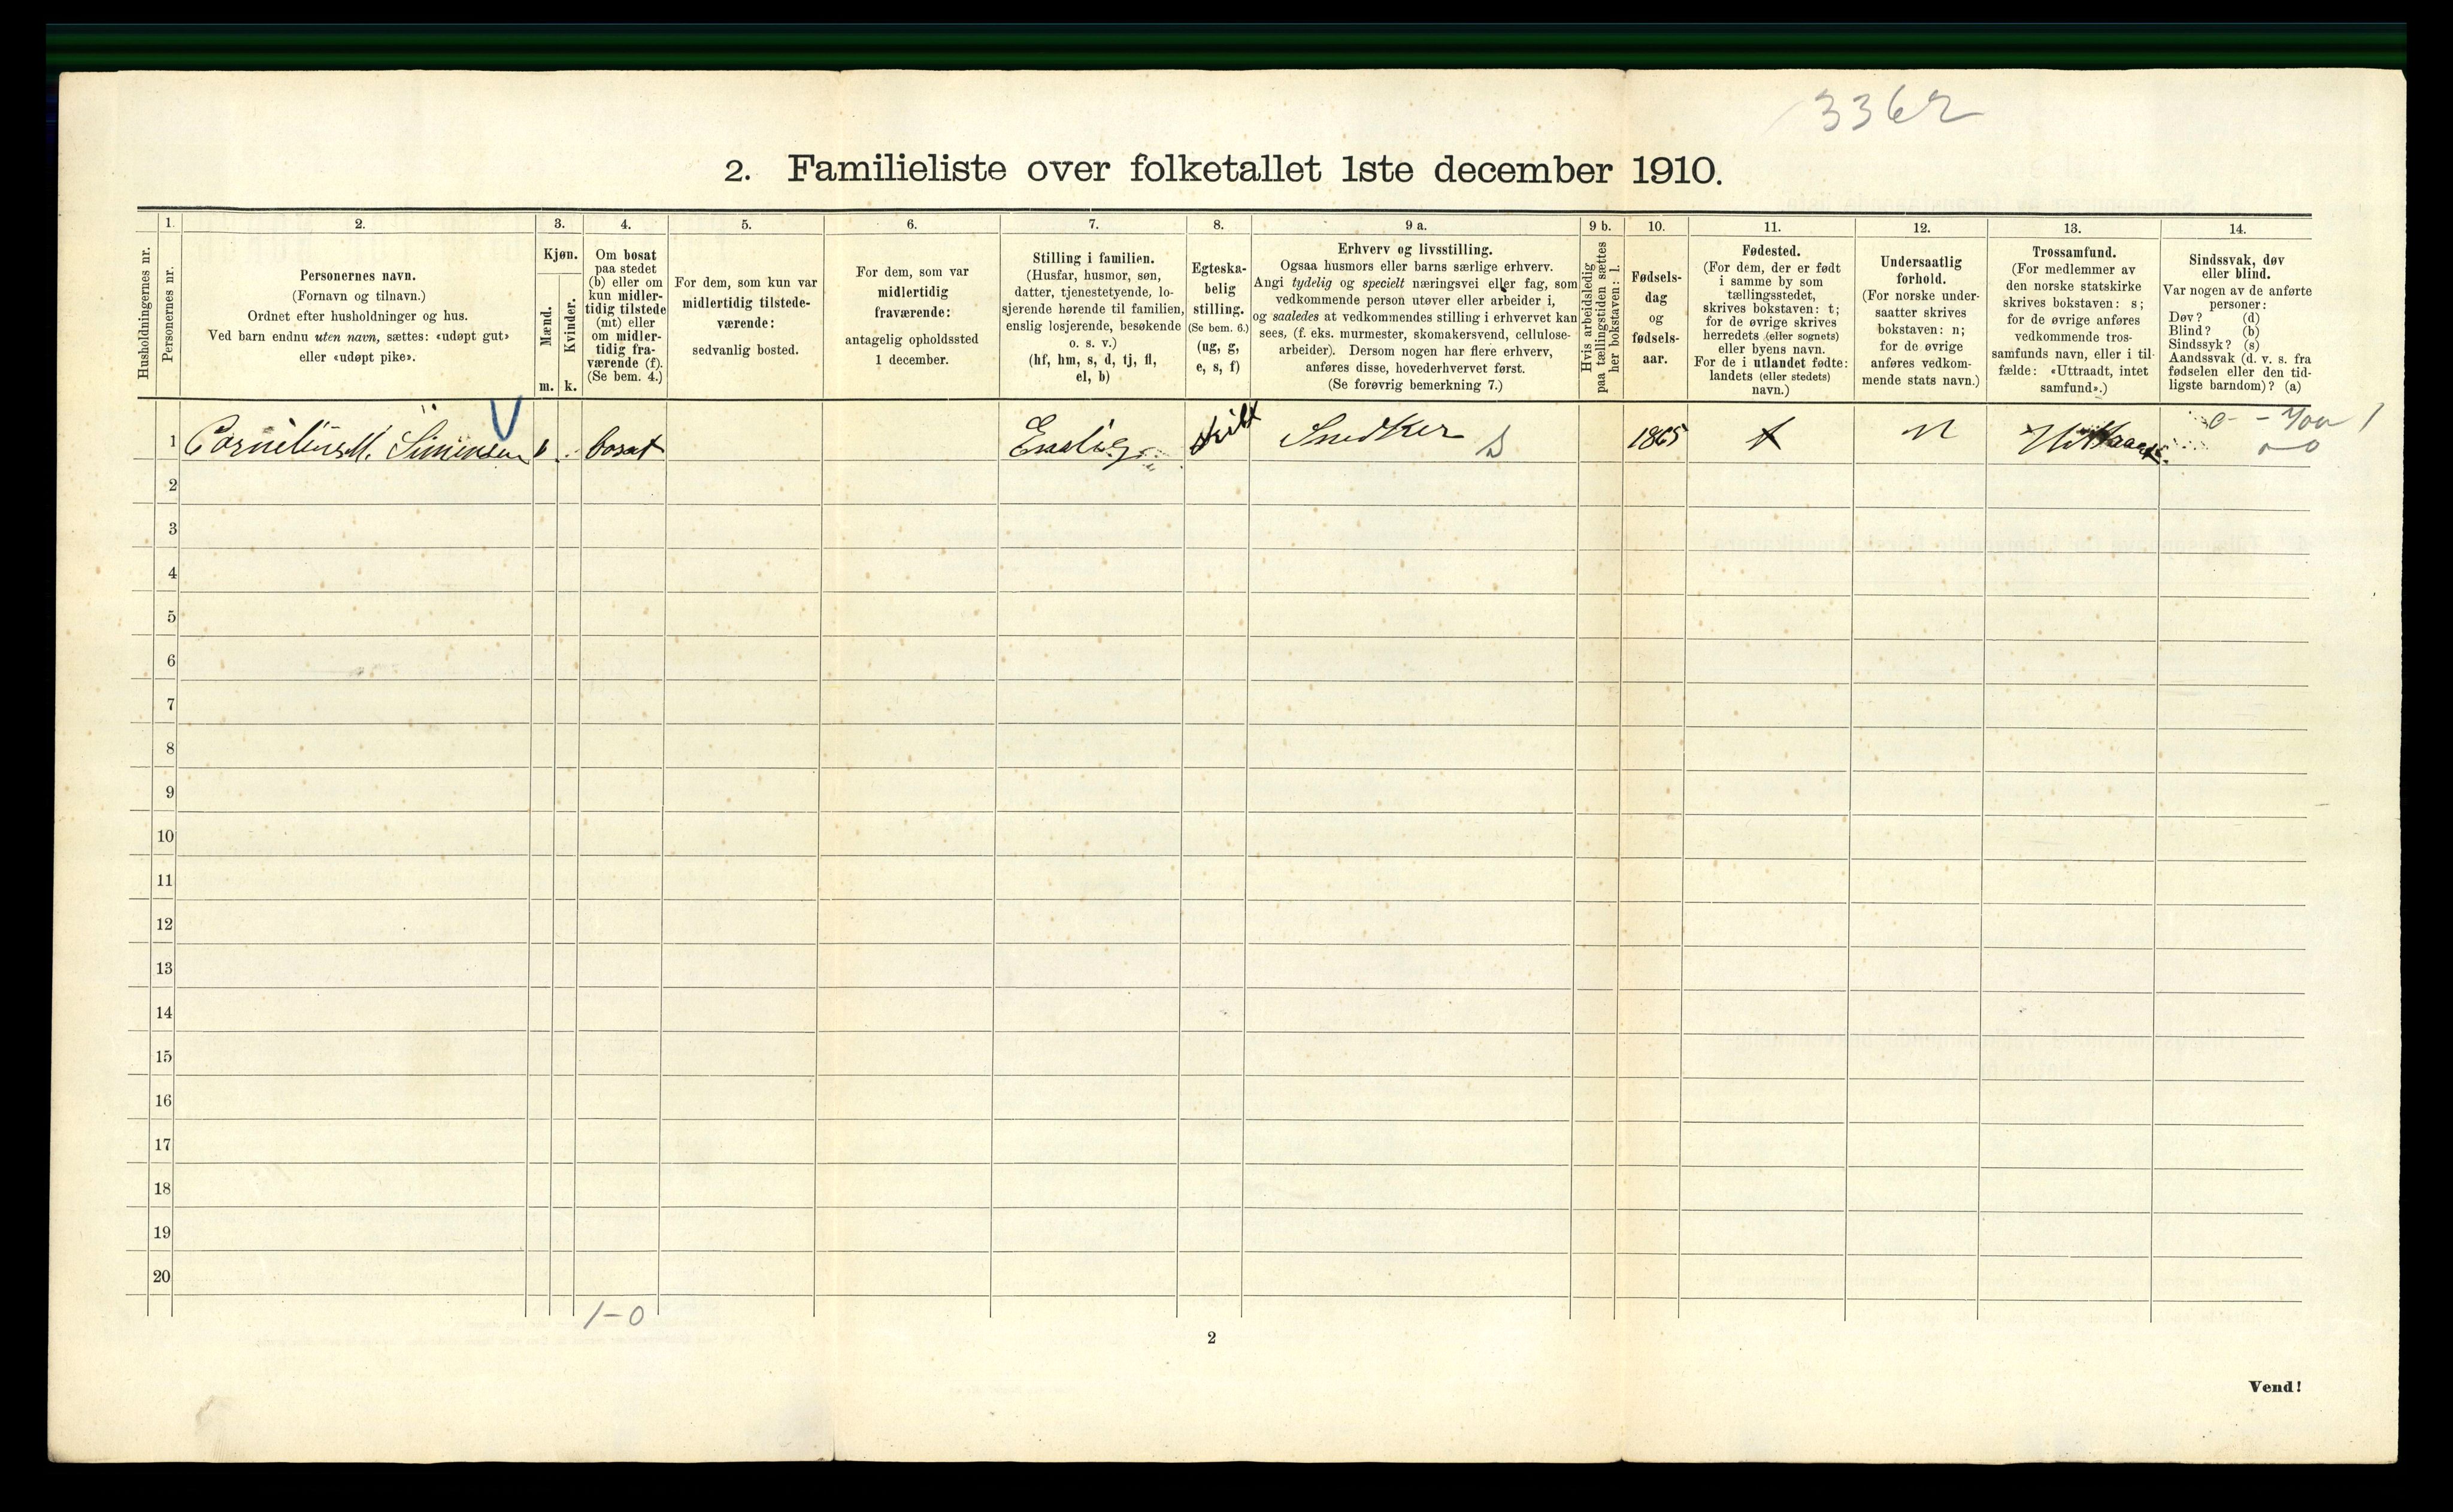 3362
2. Familieliste over folketallet 1ste december 1910.
Husholdningernes nr.
1.
Personernes nr.
2.
Personernes navn.
(Fornavn og tilnavn.)
Ordnet efter husholdninger og hus.
Ved barn endnu uten navn, sættes: «udøpt gut»
eller «udøpt pike».
3.
Kjøn.
Mænd.
Kvinder.
m. k.
4.
Om bosat
paa stedet
(b) eller om
kun midler-
tidig tilstede
(mt) eller
om midler-
tidig fra-
værende (f).
(Se bem. 4.)
5.
For dem, som kun var
midlertidig tilstede-
værende:
sedvanlig bosted.
6.
For dem, som var
midlertidig
fraværende:
antagelig opholdssted
1 december.
7.
Stilling i familien.
(Husfar, husmor, søn,
datter, tjenestetyende, lo-
sjerende hørende til familien,
enslig losjerende, besøkende
o. s. v.)
(hf, hm, s, d, tj, fl,
el, b)
8.
Egteska-
belig
stilling.
(Se bem. 6.)
(ug, g,
e, s, f)
9 a.
Erhverv og livsstilling.
Ogsaa husmors eller barns særlige erhverv.
Angi tydelig og specielt næringsvei eller fag, som
vedkommende person utøver eller arbeider i,
og saaledes at vedkommendes stilling i erhvervet kan
sees, (f. eks. murmester, skomakersvend, cellulose-
arbeider). Dersom nogen har flere erhverv,
anføres disse, hovederhvervet først.
(Se forøvrig bemerkning 7.)
9 b.
Hvis arbeidsledig
paa tællingstiden sættes
her bokstaven: l.
10.
Fødsels-
dag
og
fødsels-
aar.
11.
Fødested.
(For dem, der er født
i samme by som
tællingsstedet,
skrives bokstaven: t;
for de øvrige skrives
herredets (eller sognets)
eller byens navn.
For de i utlandet fødte:
landets (eller stedets)
navn.)
12.
Undersaatlig
forhold.
(For norske under-
saatter skrives
bokstaven: n;
for de øvrige
anføres vedkom-
mende stats navn.)
13.
Trossamfund.
(For medlemmer av
den norske statskirke
skrives bokstaven: s;
for de øvrige anføres
vedkommende tros-
samfunds navn, eller i til-
fælde: «Uttraadt, intet
samfund».)
14.
Sindssvak, døv
eller blind.
Var nogen av de anførte
personer:
Døv? (d)
Blind? (b)
Sindssyk? (s)
Aandssvak (d. v. s. fra
fødselen eller den tid-
ligste barndom)? (a)
1 Cornelius M. Simensen bosat Enslig skilt Snedker 1865 t n
2
3
4
5
6
7
8
9
10
11
12
13
14
15
16
17
18
19
20
1-0
2
Vend!